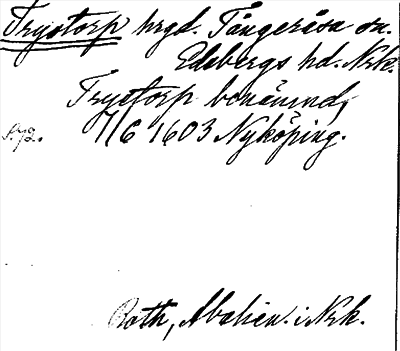 Trystorp hrgd. Tångeråsa sn.
Edsbergs hd. Nrk.
Trystorp benämnd,
S. 72. 7/6 1603 Nyköping.
Roth, i Nrk.